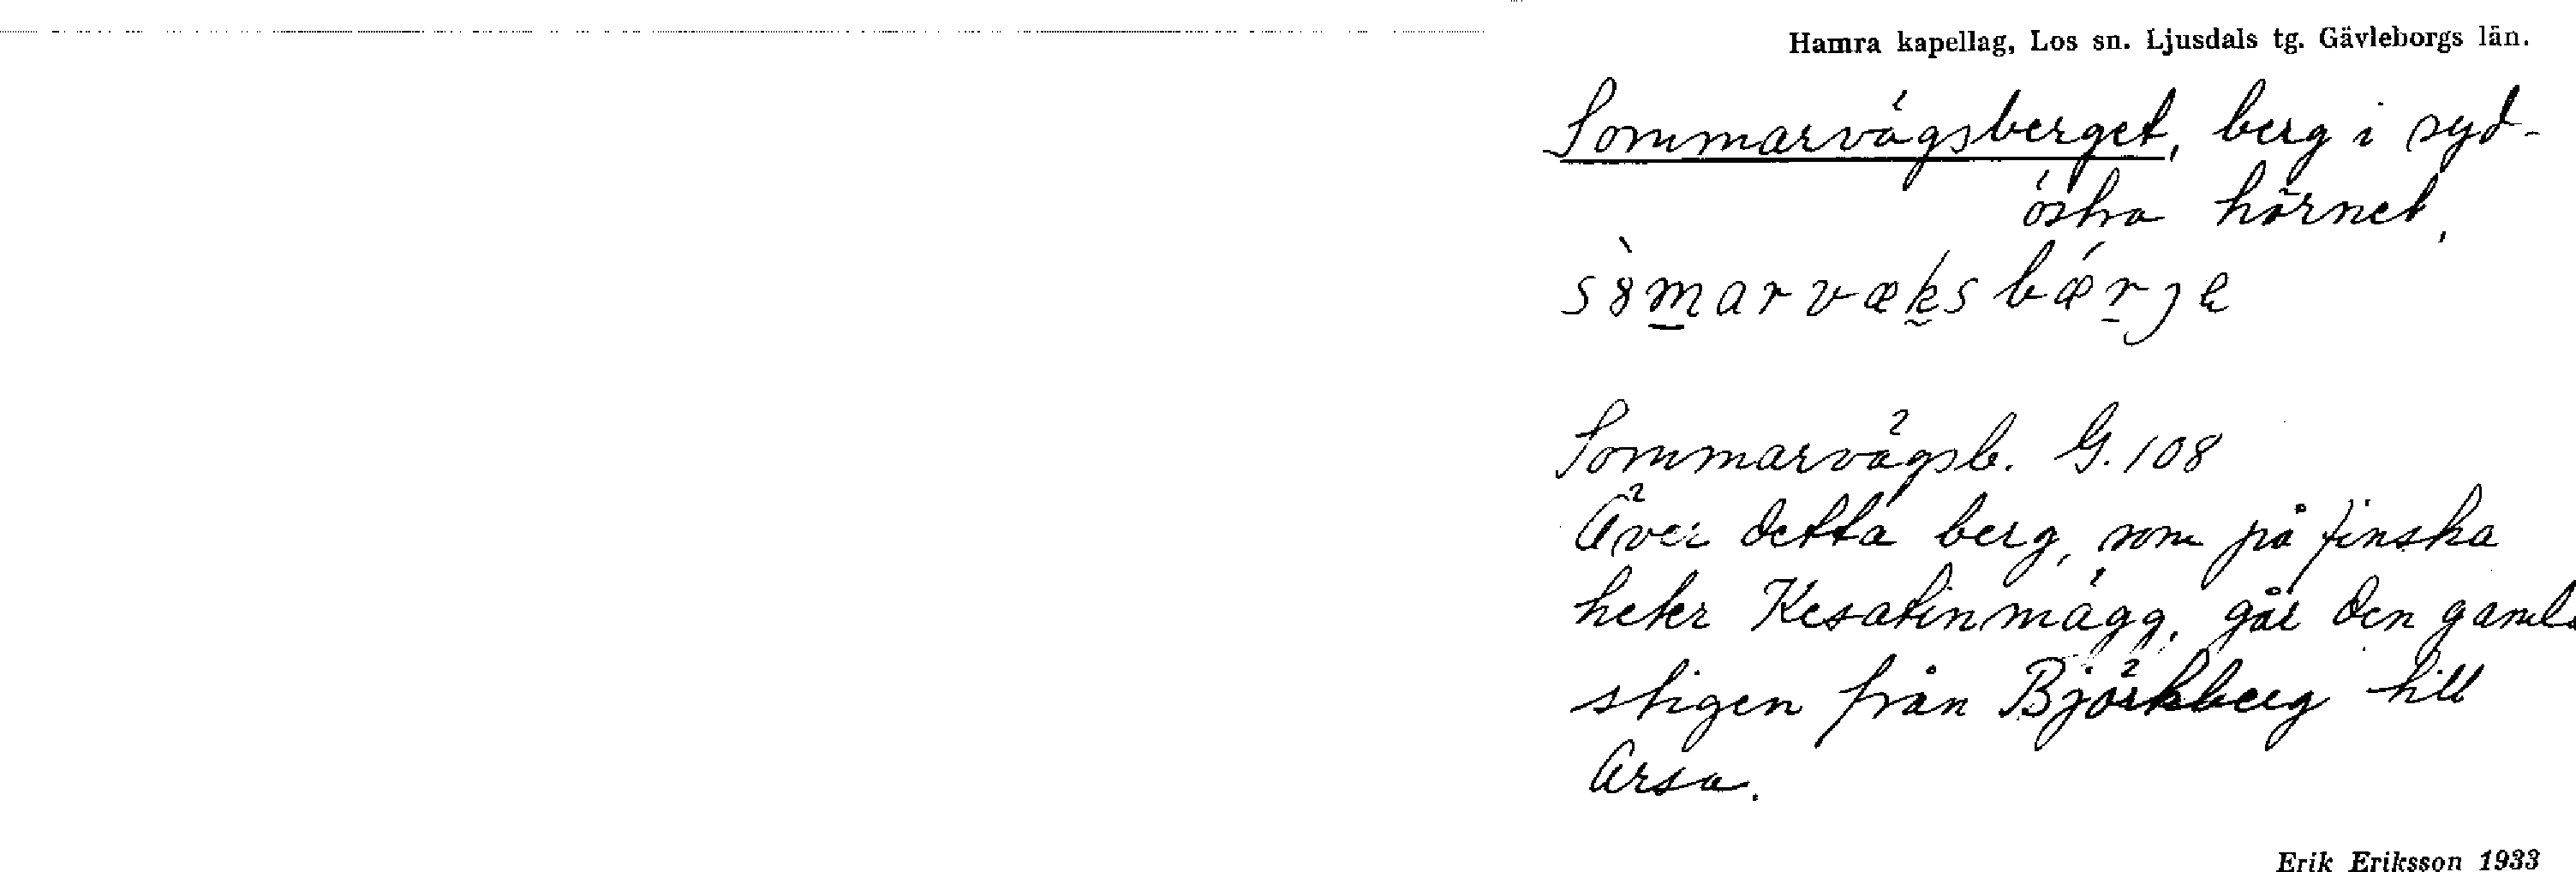 Hamra kapellag, Los sn. Ljusdals tg. Gävleborgs län.
Sommarvägsberget, berg i syd-
östra hörnet,
sòmarvæksbǽrje
Sommarvägsb. G. 108
Över detta berg, som på finska
heter Kesatinmägg, går den gamla
stigen från Björkberg till
Orsa.
Erik Eriksson 1933